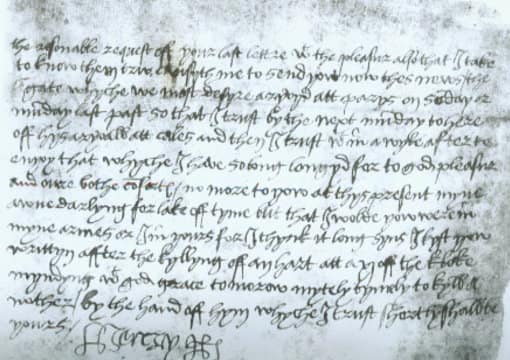 the resonable request off your last lettre wt the pleasur also that I take
to know them trw causyth me to send yow now thes news the
legate whyche we most desyre aryvyd att parys on sonday or
munday last past so that I trust by the next munday to here
off hys aryvall att cales and then I trust wtin a wyle after to
enyoy that whyche I have so long longyd for to god pleasur
and oure bothe cofarte / no more to yow at thys present myne
awne darlyng for lake off tyme but that I wolde yow were in
myne armes or I in yours for I thynk it long syns I kyst yow
writtyn affter the kyllyng off an hart att a xj off the kloke
myndyng wt god grace to morow mytely tymely to kyll a
nother / by the hand off hym whyche I trust shortly shallbe
yours /
Henry R